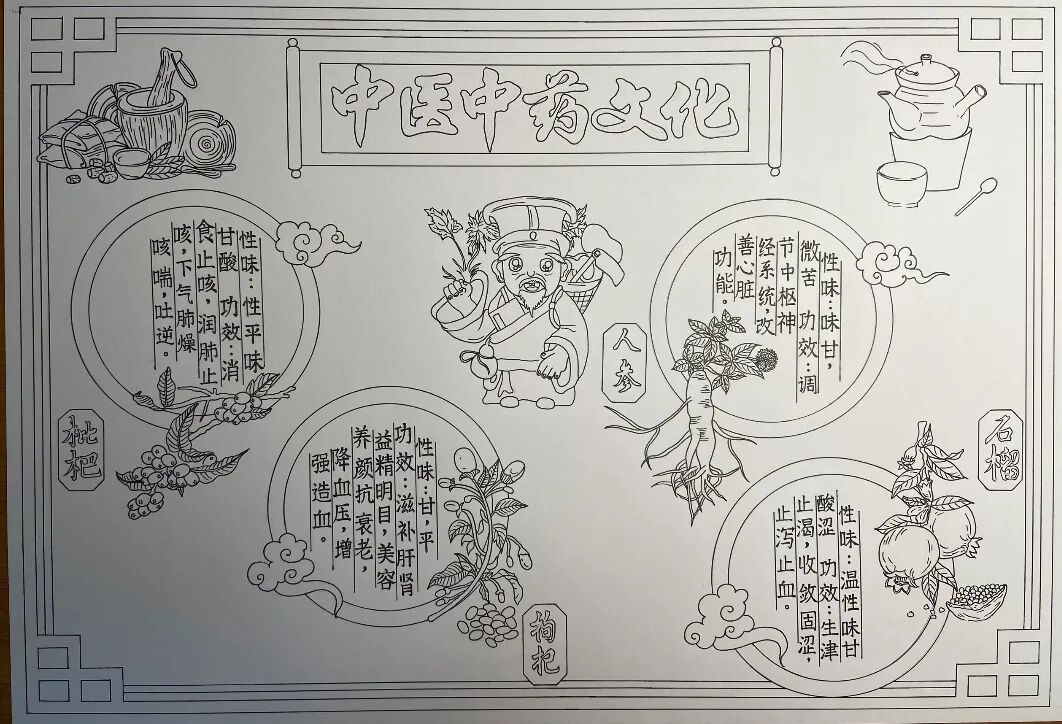 中医中药文化
性味：性平味
甘酸 功效：消
食止咳，润肺止
咳，下气肺燥
咳喘，吐逆。
枇杷
性味：甘，平
功效：滋补肝肾
益精明目，美容
养颜抗衰老，
降血压，增
强造血。
枸杞
性味：味甘，
微苦 功效：调
节中枢神
经系统，改
善心脏
功能。
人参
性味：温性味甘
酸涩 功效：生津
止渴，收敛固涩，
止泻止血。
石榴